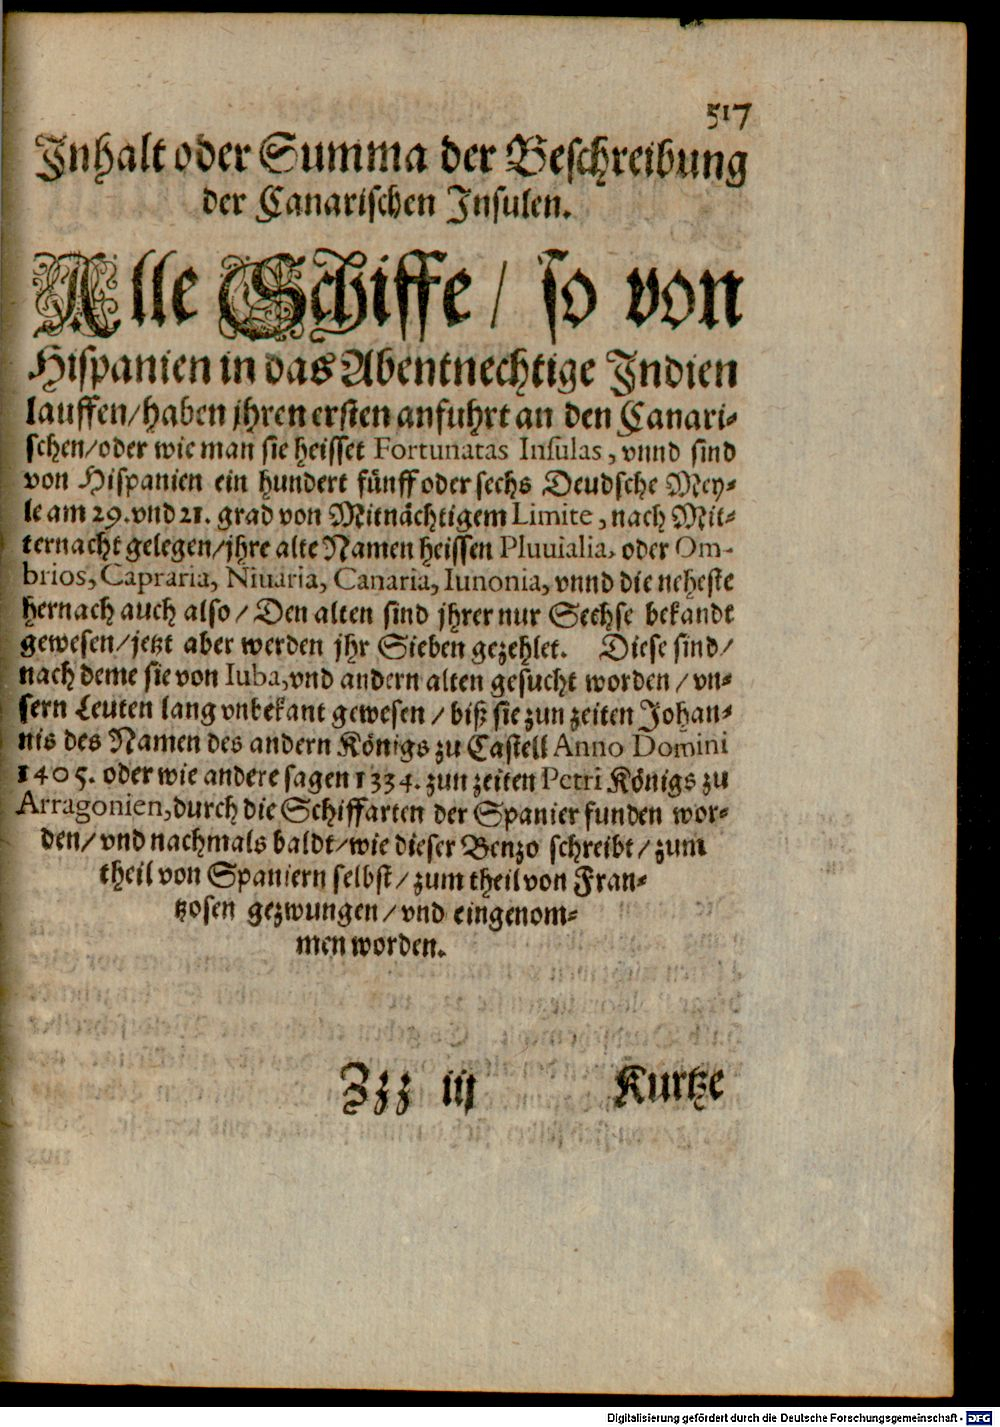 517
Inhalt oder Summa der Beschreibung
der Canarischen Insulen.
Alle Schiffe / so von
Hispanien in das Abentnechtige Indien
lauffen/haben jhren ersten anfuhrt an den Canari-
schen/oder wie man sie heisset Fortunatas Insulas, vnnd sind
von Hispanien ein hundert fünff oder sechs Deudsche Mey-
le am 29. vnd 21. grad von Mitnächtigem Limite, nach Mit-
ternacht gelegen/jhre alte Namen heissen Pluuialia, oder Om-
brios, Capraria, Niuaria, Canaria, Iunonia, vnnd die neheste
hernach auch also / Den alten sind jhrer nur Sechse bekandt
gewesen/jetzt aber werden jhr Sieben gezehlet. Diese sind/
nach deme sie von Iuba, vnd andern alten gesucht worden / vn-
sern Leuten lang vnbekant gewesen / biß sie zun zeiten Johan-
nis des Namen des andern Königs zu Castell Anno Domini
1405. oder wie andere sagen 1334. zun zeiten Petri Königs zu
Arragonien, durch die Schiffarten der Spanier funden wor-
den/ vnd nachmals baldt/wie dieser Benzo schreibt/ zum
theil von Spaniern selbst/ zum theil von Fran-
tzosen gezwungen / vnd eingenom-
men worden.
Zzz iij Kurtze
Digitalisierung gefördert durch die Deutsche Forschungsgemeinschaft - DFG